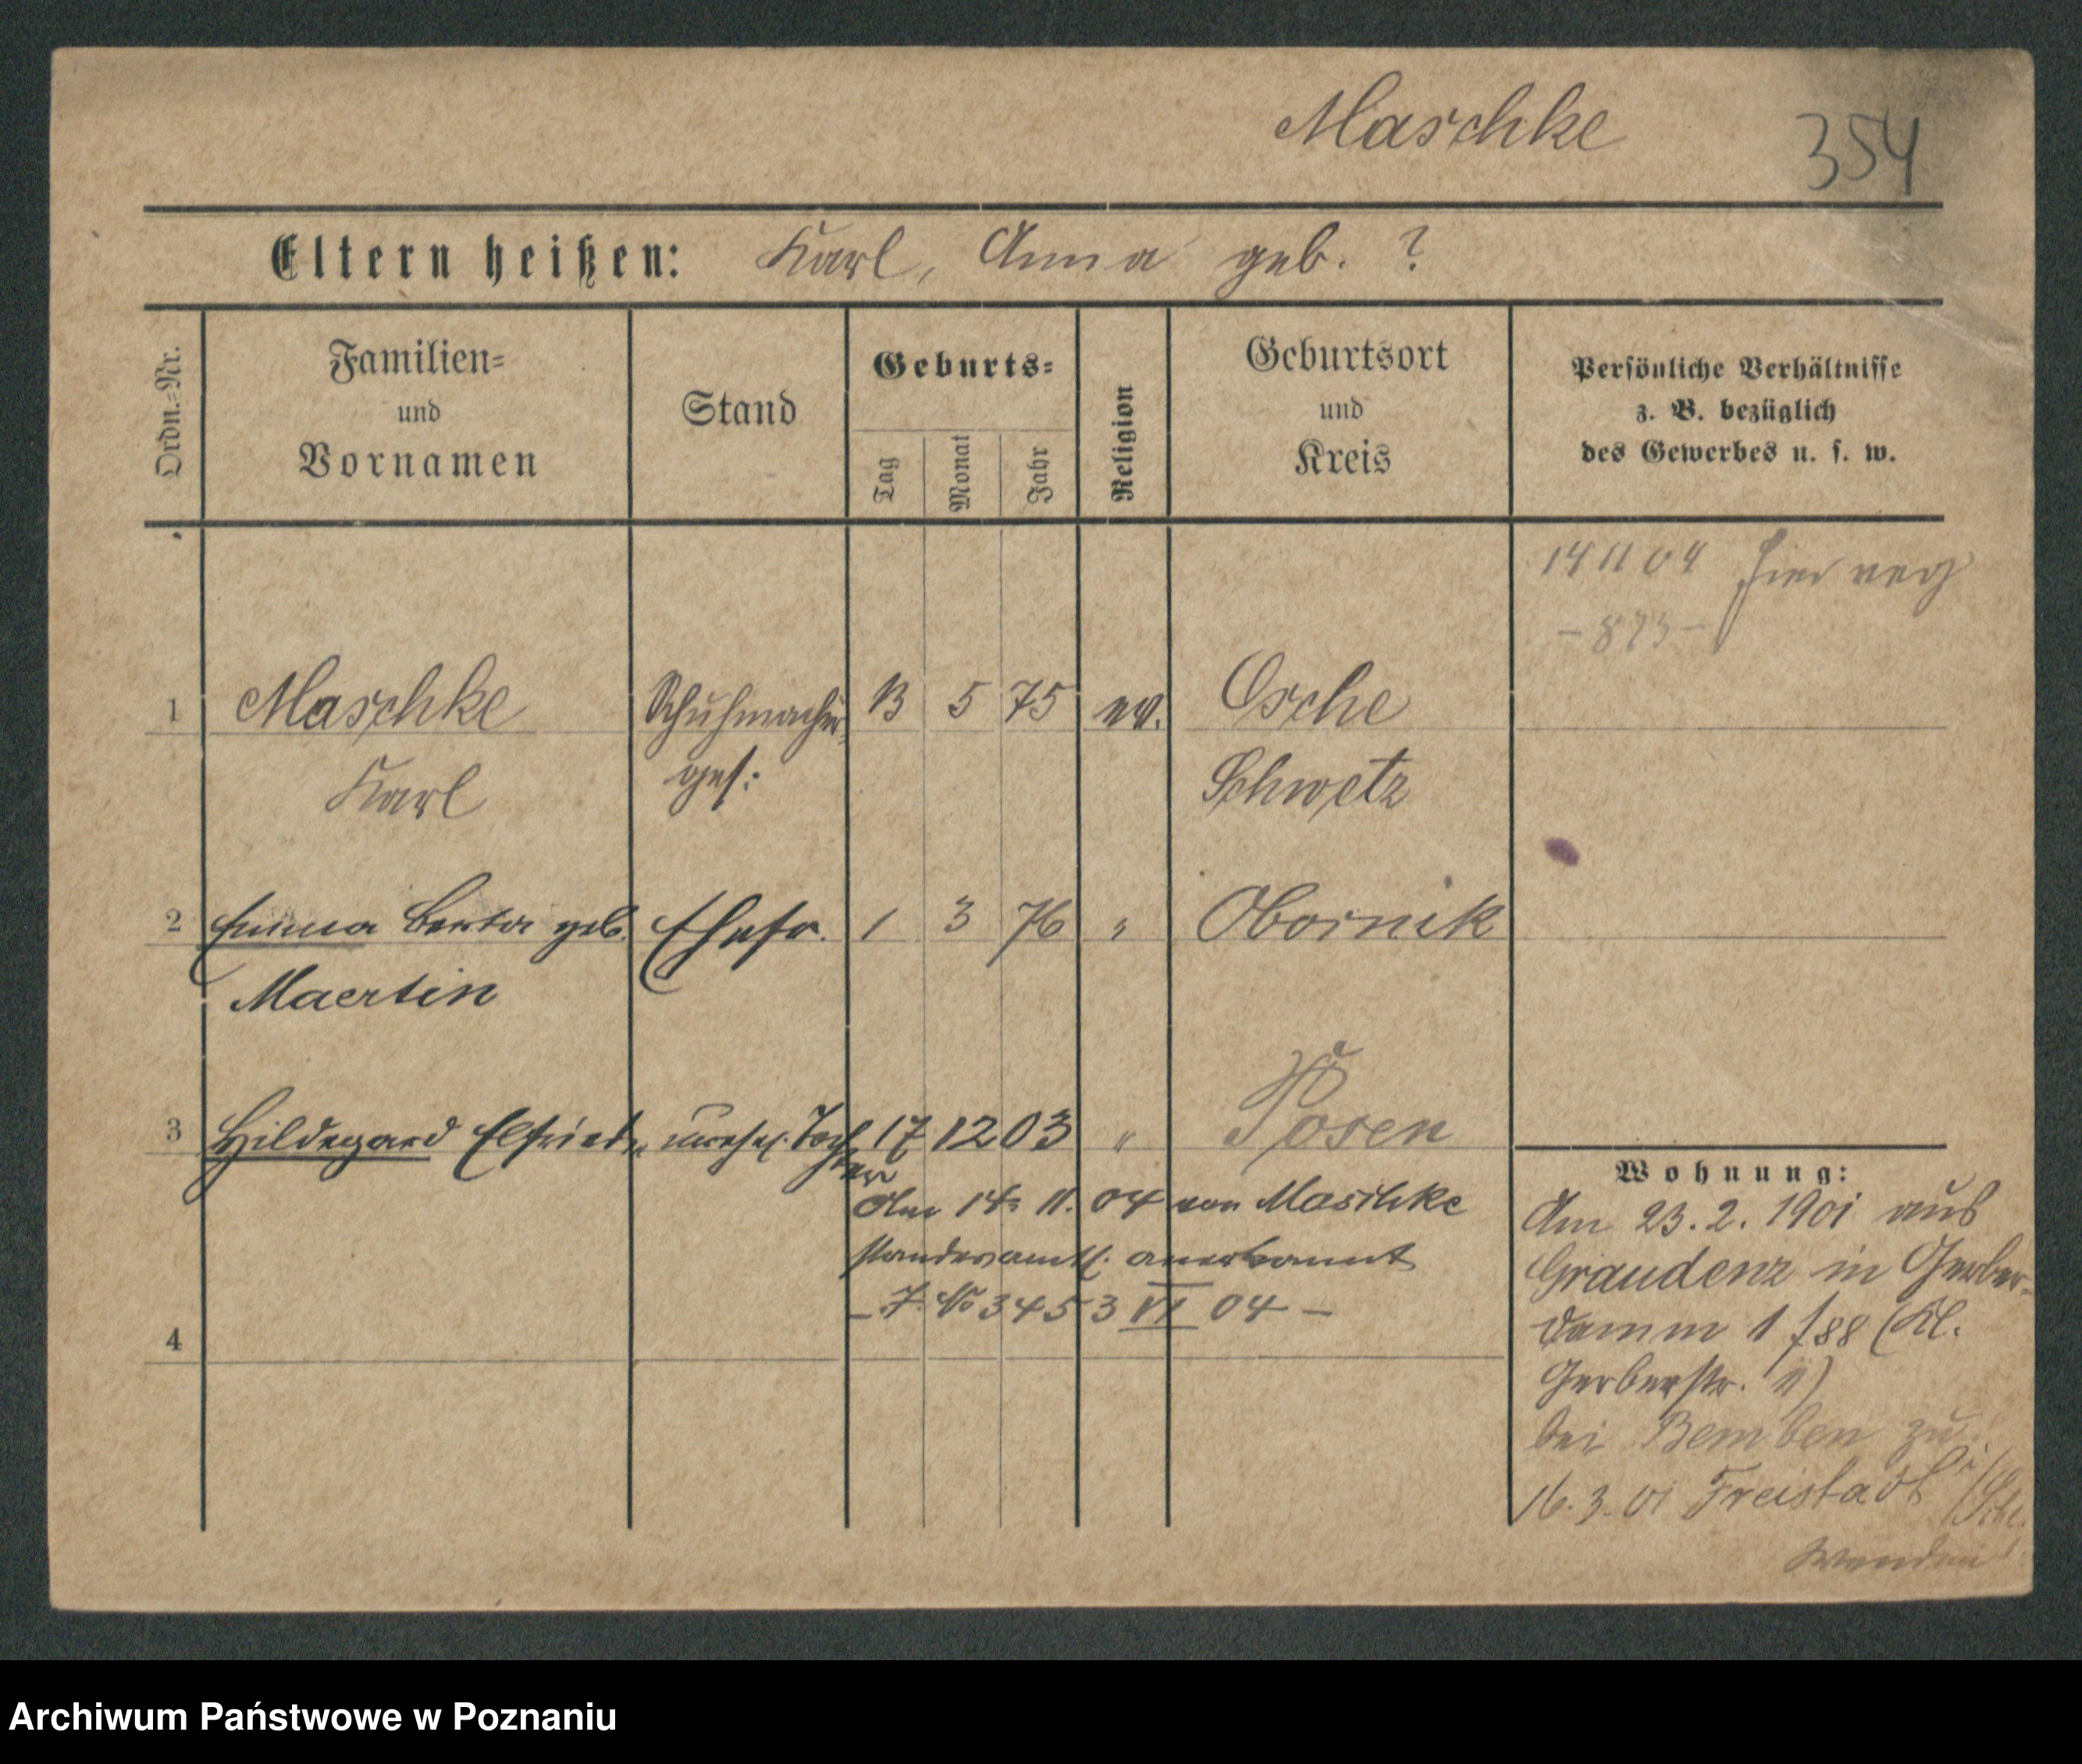 Maschke 354
Eltern heißen: Karl, Anna geb. ?
Ordn.=Nr.
Familien=
und
Vornamen
Stand
Geburts=
Tag
Monat
Jahr
Religion
Geburtsort
und
Kreis
Persönliche Verhältnisse
z. B. bezüglich
des Gewerbes u. s. w.
14 11 04
1 Maschke Schuhmacher 13 5 75 ev. Osche
Karl ges: Schwetz
2 Emma Berta geb. Ehefr. 1 3 76 " Obornik
Maertin
3 Hildegard Elfriede, unehel. Tochter 17 12 03 " Posen
Am 14. 11. 04 von Maschke
standesamtl. anerkannt
- J. No 3453 VI 04 -
4
Wohnung:
Am 23. 2. 1901 aus
Graudenz in Gerber-
damm 1 f 88 (Kl.
Gerberstr. 11)
bei Bemben zu.
16. 3. 01 Freistadt i/Schl.
Wenden
Archiwum Państwowe w Poznaniu